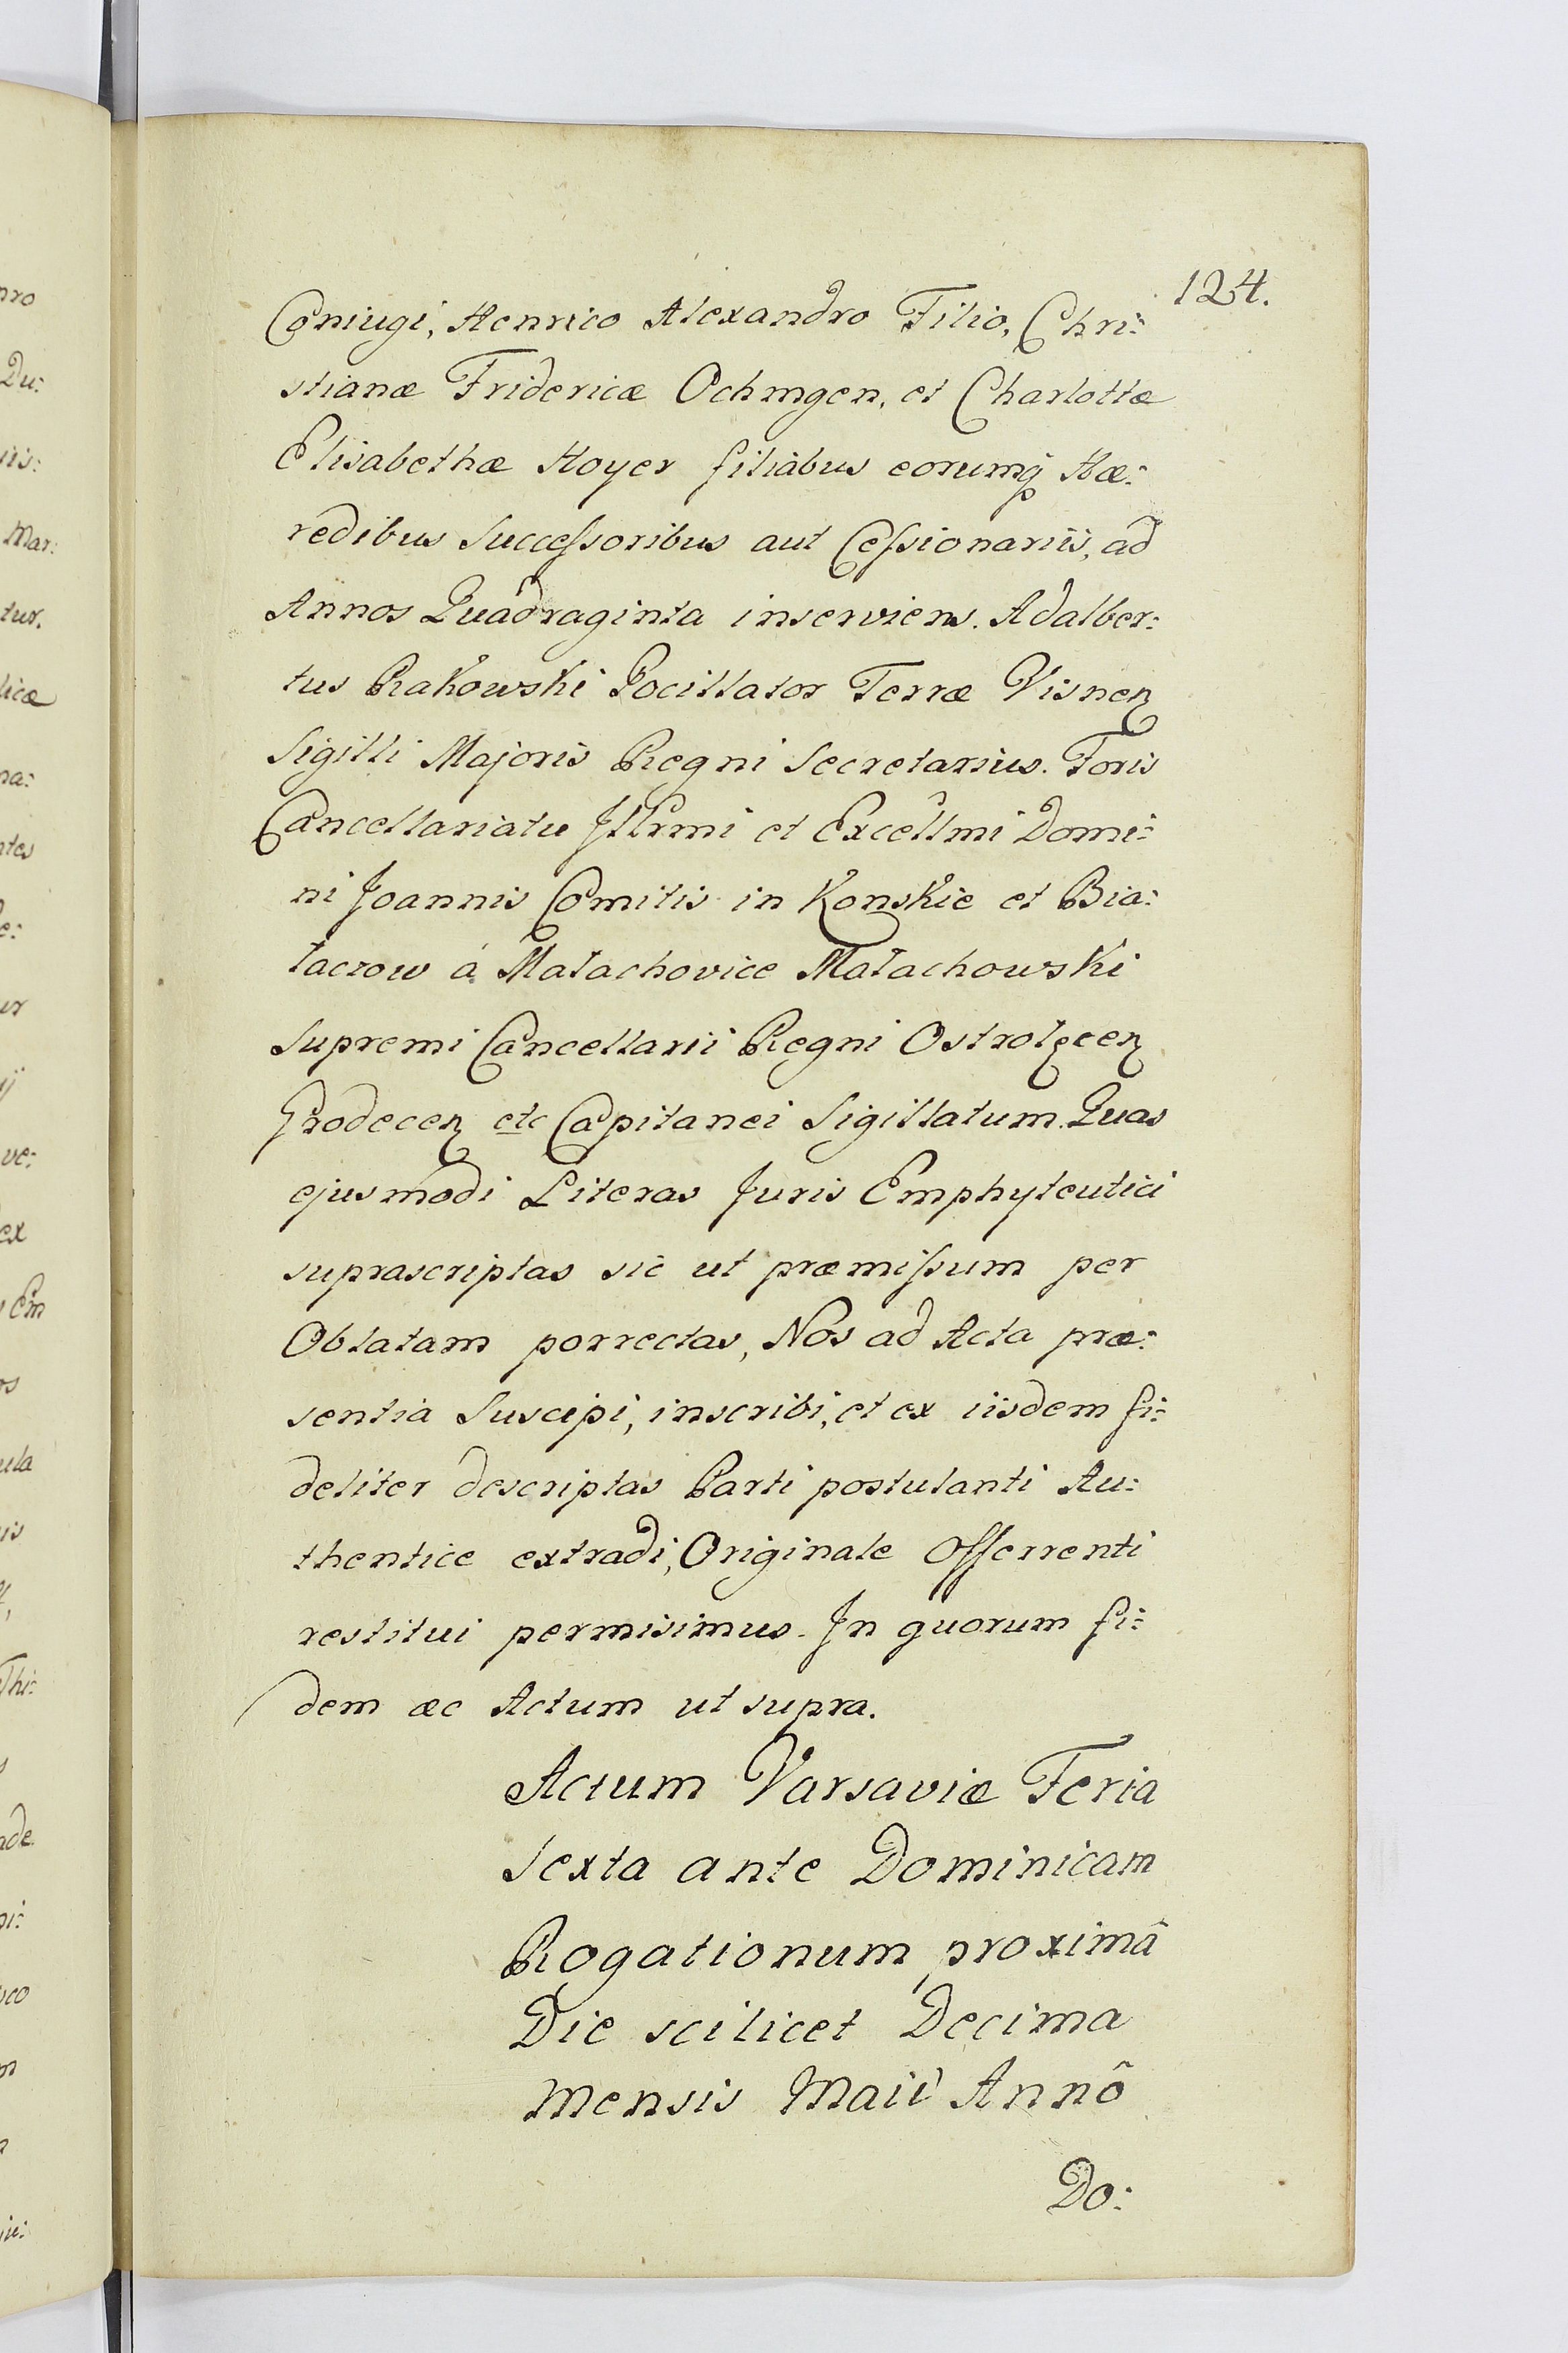 124.
Coniugi, Henrico Alexandro Filio, Chri:
stianæ Fridericæ Ochmgen, et Charlottæ
Elisabethæ Hoyer filiabus eorumq̃ Hæ:
redibus Successoribus aut Cessionariis, ad
Annos Quadraginta inserviens. Adalber:
tus Rakowski Pocillator Terræ Visnen
Sigilli Majoris Regni Secretarius. Foris
Cancellariatu Jllrmi et Excellmi Domi:
ni Joannis Comitis in Konskie et Bia:
łaczow á Małachovice Małachowski
Supremi Cancellarii Regni Ostrołęcen
Grodecen etc Capitanei Sigillatum. Quas
ejusmodi Literas Juris Emphyteutici
suprascriptas sic ut præmissum per
Oblatam porrectas, Nos ad Acta præ:
sentia Suscipi, inscribi, et ex iisdem fi:
deliter descriptas Parti postulanti Au:
thentice extradi, Originale Offerrenti
restitui permisimus. Jn quorum fi:
dem ac Actum ut supra.
Actum Varsaviæ Feria
Sexta ante Dominicam
Rogationum proximâ
Die scilicet Decima
Mensis Maii Annô
Do:
pro
Du:
Mar:
tur.
licæ
na:
ntes
ve:
ex
Em